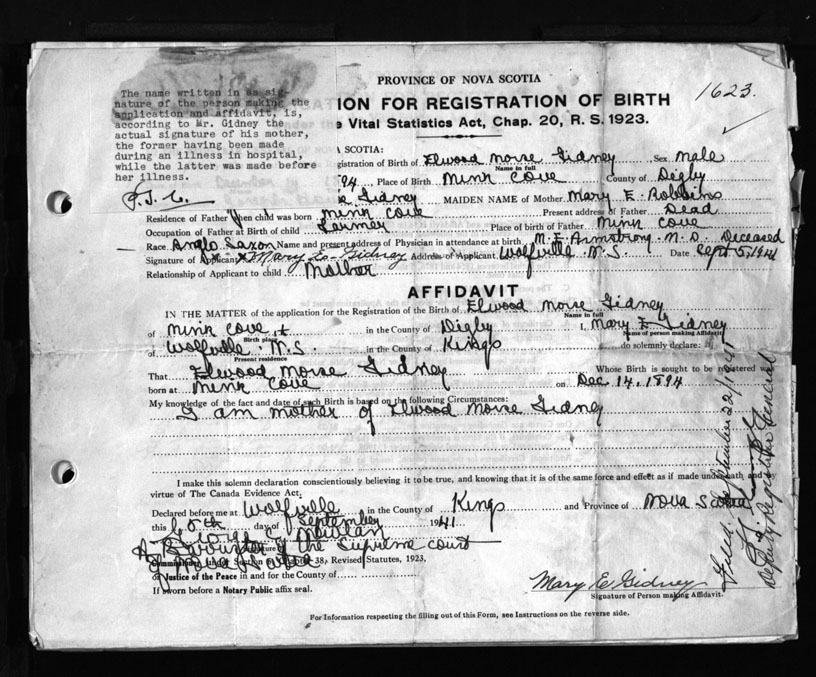 The name written in as sig-
nature of the person making the
application and affidavit, is,
according to Mr. Gidney the
actual signature of his mother,
the former having been made
during an illness in hospital,
while the latter was made before
her illness.
PROVINCE OF NOVA SCOTIA
1623.
ION FOR REGISTRATION OF BIRTH
e Vital Statistics Act, Chap. 20, R. S. 1923.
A SCOTIA:
gistration of Birth of Elwood Morse Gidney Sex Male
Name in full
94 Place of Birth Mink Cove County of Digby
Gidney MAIDEN NAME of Mother Mary E. Robbins
Residence of Father when child was born Mink Cove Present address of Father Dead
Occupation of Father at Birth of child Farmer Place of birth of Father Mink Cove
Race Anglo Saxon Name and present address of Physician in attendance at birth M. E. Armstrong. M. D. Deceased
Signature of Applicant Mary Gidney Address of Applicant Wolfville N.S. Date Sept 5, 1941
Relationship of Applicant to child Mother
AFFIDAVIT
IN THE MATTER of the application for the Registration of the Birth of Elwood Morse Gidney
Name in full
of Mink Cove in the County of Digby I, Mary E Gidney
Birth place
Name of person making Affidavit
of Wolfville. N.S. in the County of Kings do solemnly declare:
Present residence
That Elwood Morse Gidney Whose Birth is sought to be registered was
born at Mink Cove on Dec 14, 1894
My knowledge of the fact and date of such Birth is based on the following Circumstances:
I am mother of Elwood Morse Gidney
I make this solemn declaration conscientiously believing it to be true, and knowing that it is of the same force and effect as if made under oath and
virtue of The Canada Evidence Act.
Declared before me at Wolfville in the County of Kings and Province of Nova Scotia
this day of September 1941
George C
A Barrister of the Supreme Court
of Nova Scotia
38, Revised Statutes, 1923,
or Justice of the Peace in and for the County of
If sworn before a Notary Public affix seal.
Mary E Gidney
Signature of Person making Affidavit.
For Information respecting the filling out of this Form, see Instructions on the reverse side.
Filed September 22/1941
Deputy Registrar General